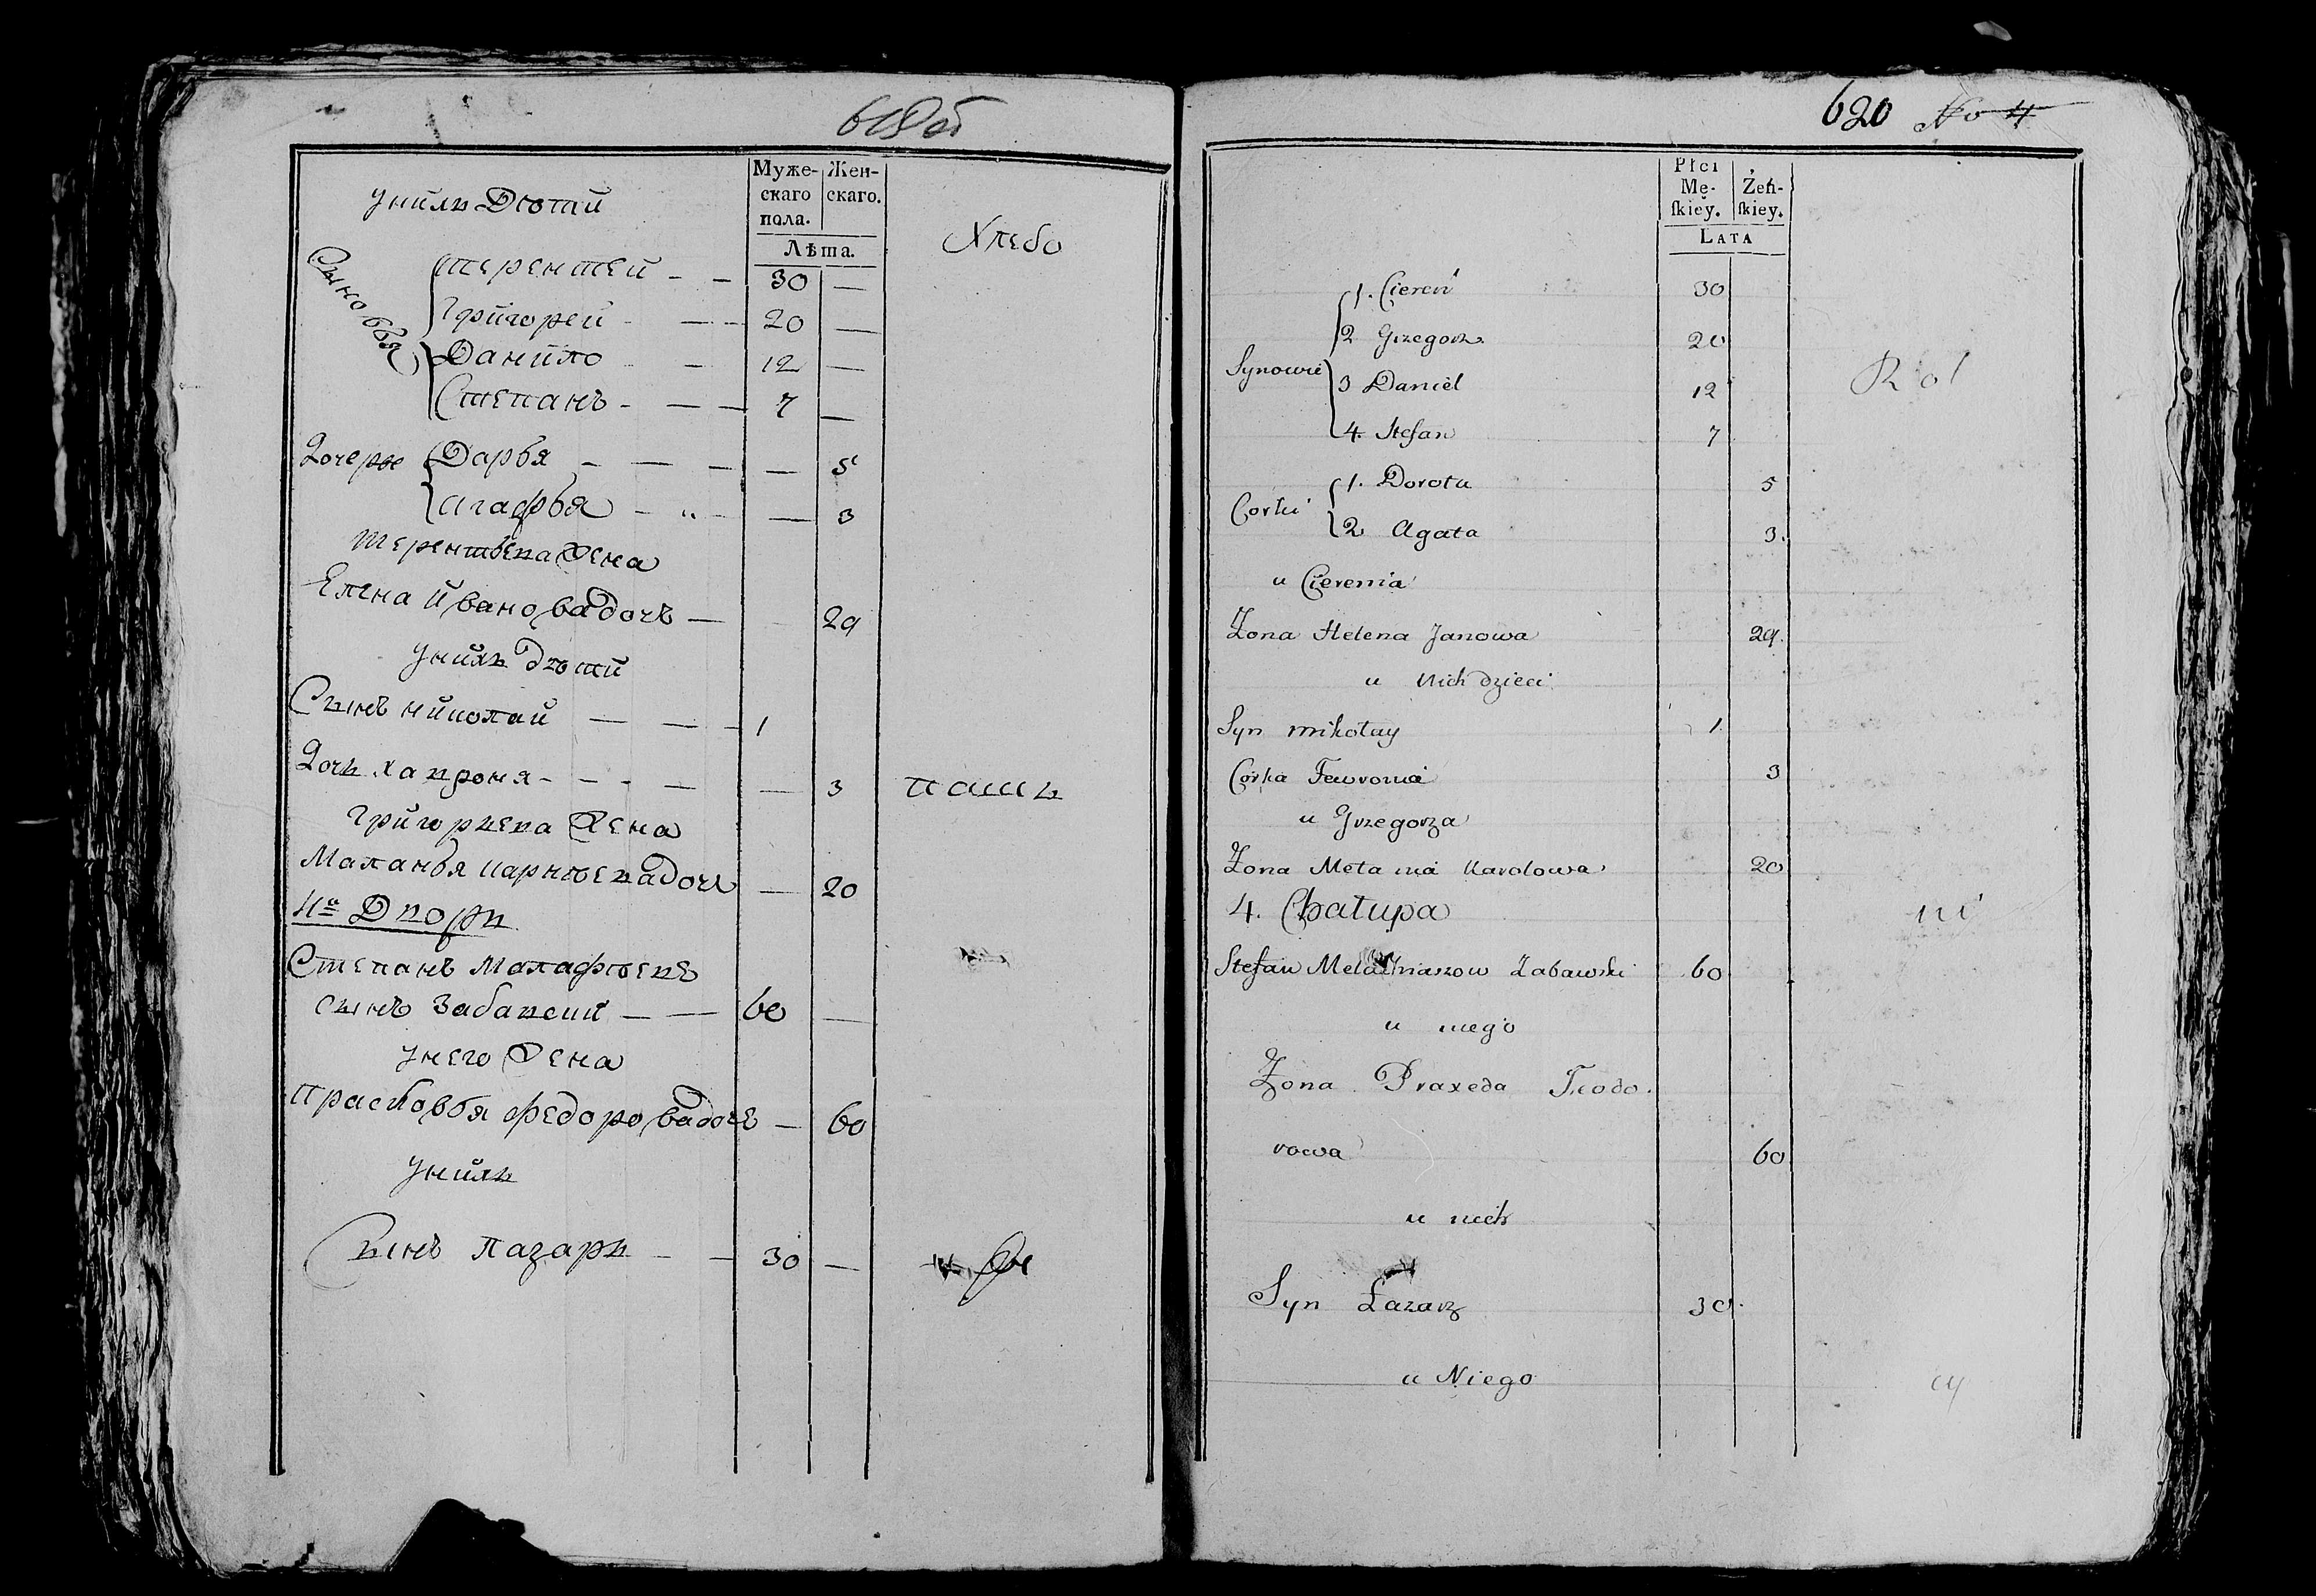 619 об
Муже-
скаго
пола.
Жен-
скаго.
Лѣта.
Унихъ Дѣтей
Хлебо
Сыновья
Терентей - - 30 —
Григорей - — 20 —
Данило - — 12 —
Степанъ - — — 7 —
Дочерѣе Дарья - — — — 5
Агафья — " — — 3
Терентьева Жена
Елена Иванова дочь — 29
Унихъ дѣти
Сынъ Николай — — — 1
Дочь Хавроня - - - — — 3
паше
Григорьева Жена
Маланья Карнѣева дочь — 20
4й Дворъ
Степанъ Малафѣевъ
сынъ Забавски — — 60 —
Унего Жена
Прасковья Федорова дочь — 60
Унихъ
Сынъ Лазарь — — 30 —
620 No 4
Płci
Mę-
skiey.
Żeń-
skiey.
LATA
1. Cieren 30
2 Grzegorz 20
Synowie
3 Daniel 12
Rol
4. Stefan 7
1. Dorota 5
Corki
2 Agata 3.
u Cierenia
Żona Helena Janowa 29.
u nich dzieci
Syn mikołay 1.
Corka Fewronia 3
u Grzegorza
Żona Mełania Karolowa 20
4. Chałupa
ni
Stefan Zabawski 60
u niego
Żona Praxeda Teodo.
rowa 60
u nich
Syn Łazarz 30.
u Niego
cy